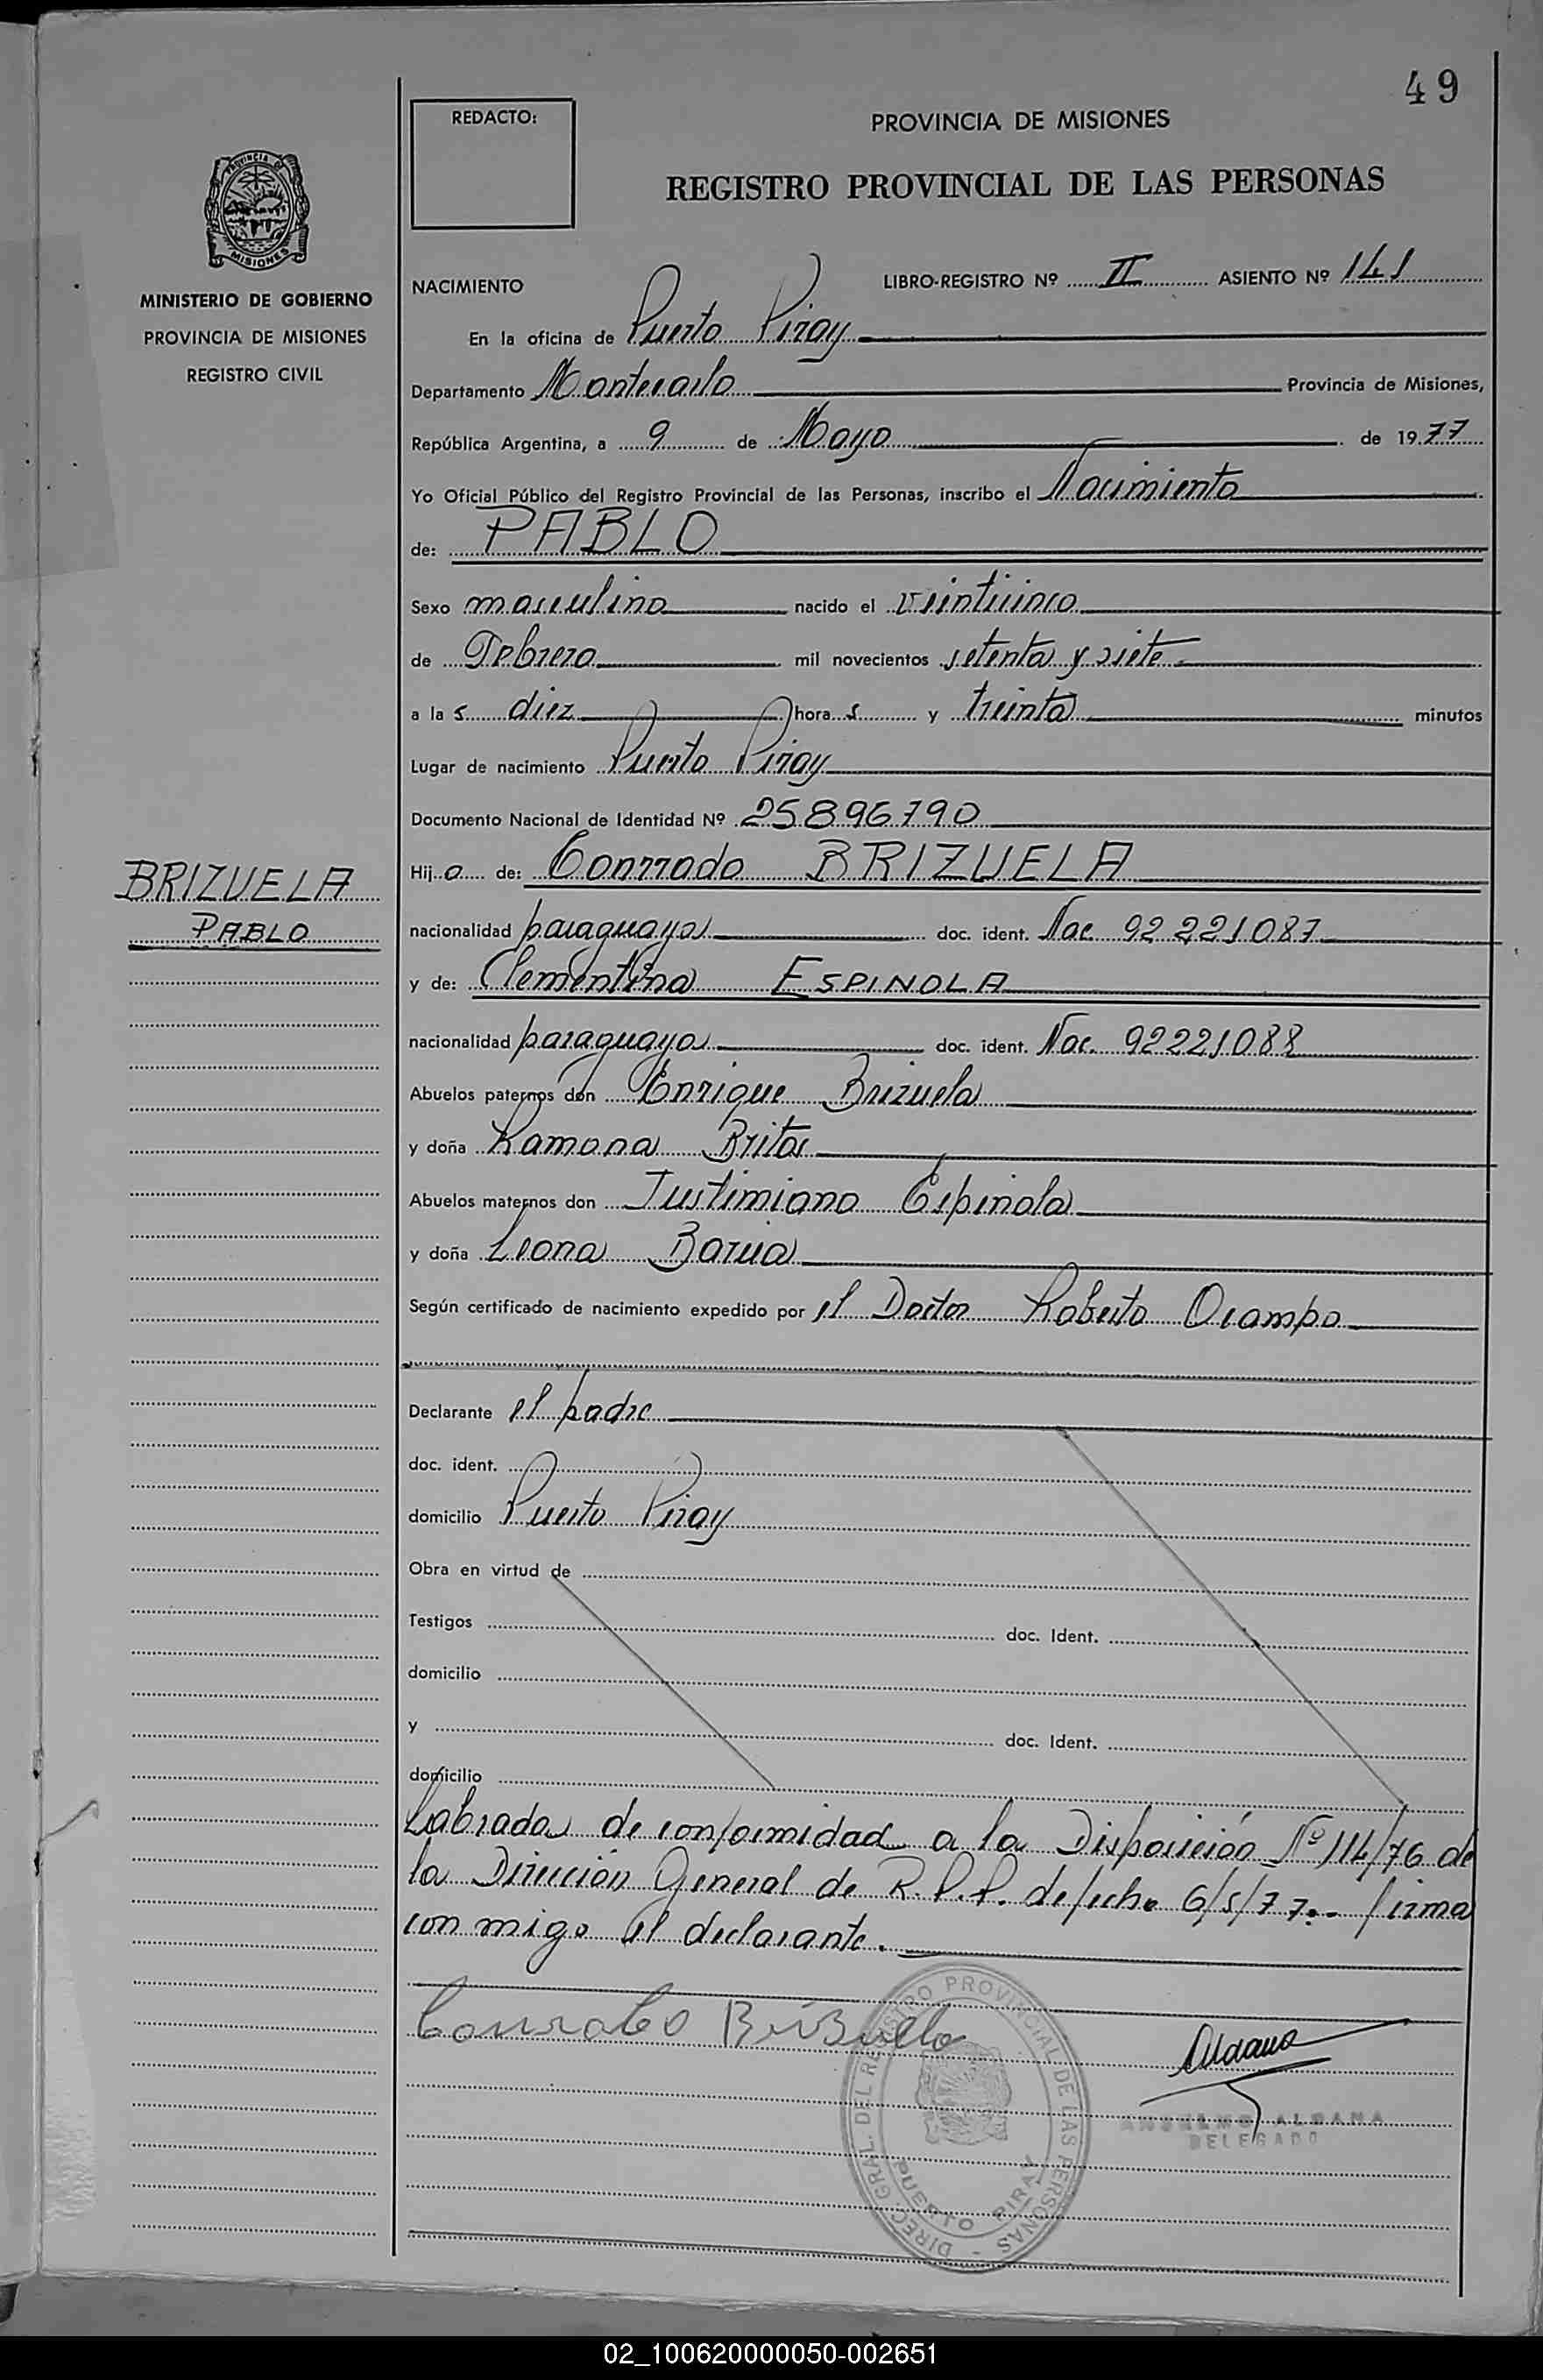 49
REDACTO:
PROVINCIA DE MISIONES
REGISTRO PROVINCIAL DE LAS PERSONAS
PROVINCIA DE MISIONES
MINISTERIO DE GOBIERNO
PROVINCIA DE MISIONES
REGISTRO CIVIL
NACIMIENTO LIBRO-REGISTRO Nº II ASIENTO Nº 141
En la oficina de Puerto Piray
Departamento Montecarlo Provincia de Misiones,
República Argentina, a 9 de Mayo de 1977
Yo Oficial Público del Registro Provincial de las Personas, inscribo el Nacimiento
de: PABLO
Sexo masculino nacido el veinticinco
de Febrero mil novecientos setenta y siete
a las diez horas y treinta minutos
Lugar de nacimiento Puerto Piray
Documento Nacional de Identidad Nº 25896790
BRIZUELA
PABLO
Hijo de: Conrrado BRIZUELA
nacionalidad paraguaya doc. ident. Nac 92 221087
y de: Clementina ESPINOLA
nacionalidad paraguaya doc. ident. Nac. 92221088
Abuelos paternos don Enrique Brizuela
y doña Ramona Britos
Abuelos maternos don Justimiano Espinola
y doña Leona Barua
Según certificado de nacimiento expedido por el Doctor Roberto Ocampo
Declarante el padre
doc. ident.
domicilio Puerto Piray
Obra en virtud de
Testigos doc. Ident.
domicilio
y doc. Ident.
domicilio
Labrada de conformidad a la Disposición Nº 114/76 de
la Dirección General de R.P.P. de fecha 6/5/77.- firma
con migo el declarante.
DIREC. GRAL. DEL REGISTRO PROVINCIAL DE LAS PERSONAS -
PUERTO PIRAY
ANSELMO ALDANA
DELEGADO
02_100620000050-002651